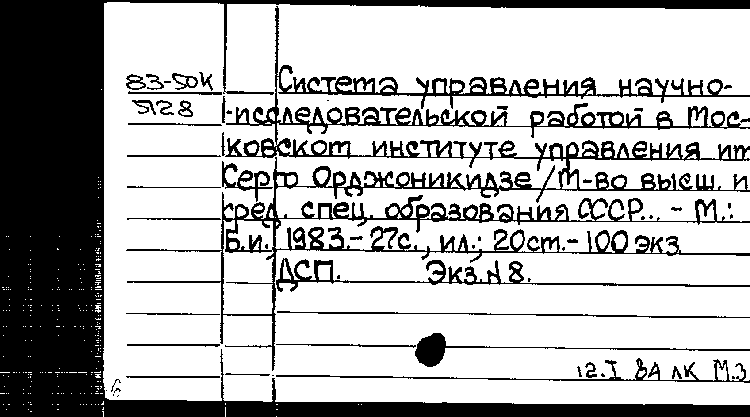 83-50К
5128
Система управления научно-
-исследовательской работой в Мос-
ковском институте управления им
Серго Орджоникидзе / М-во высш. и
сред. спец. образования СССР... - М.:
Б.и., 1983.- 27с., ил.; 20см.- 100 экз
ДСП. Экз.N 8.
12.I 84 ЛК М.З
6